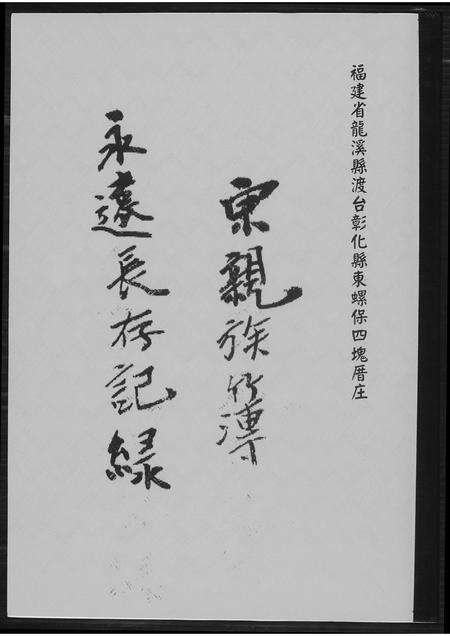 福建省龍溪縣渡台彰化縣東螺保四塊厝庄
宗親族竹溥
永遠長存記緑